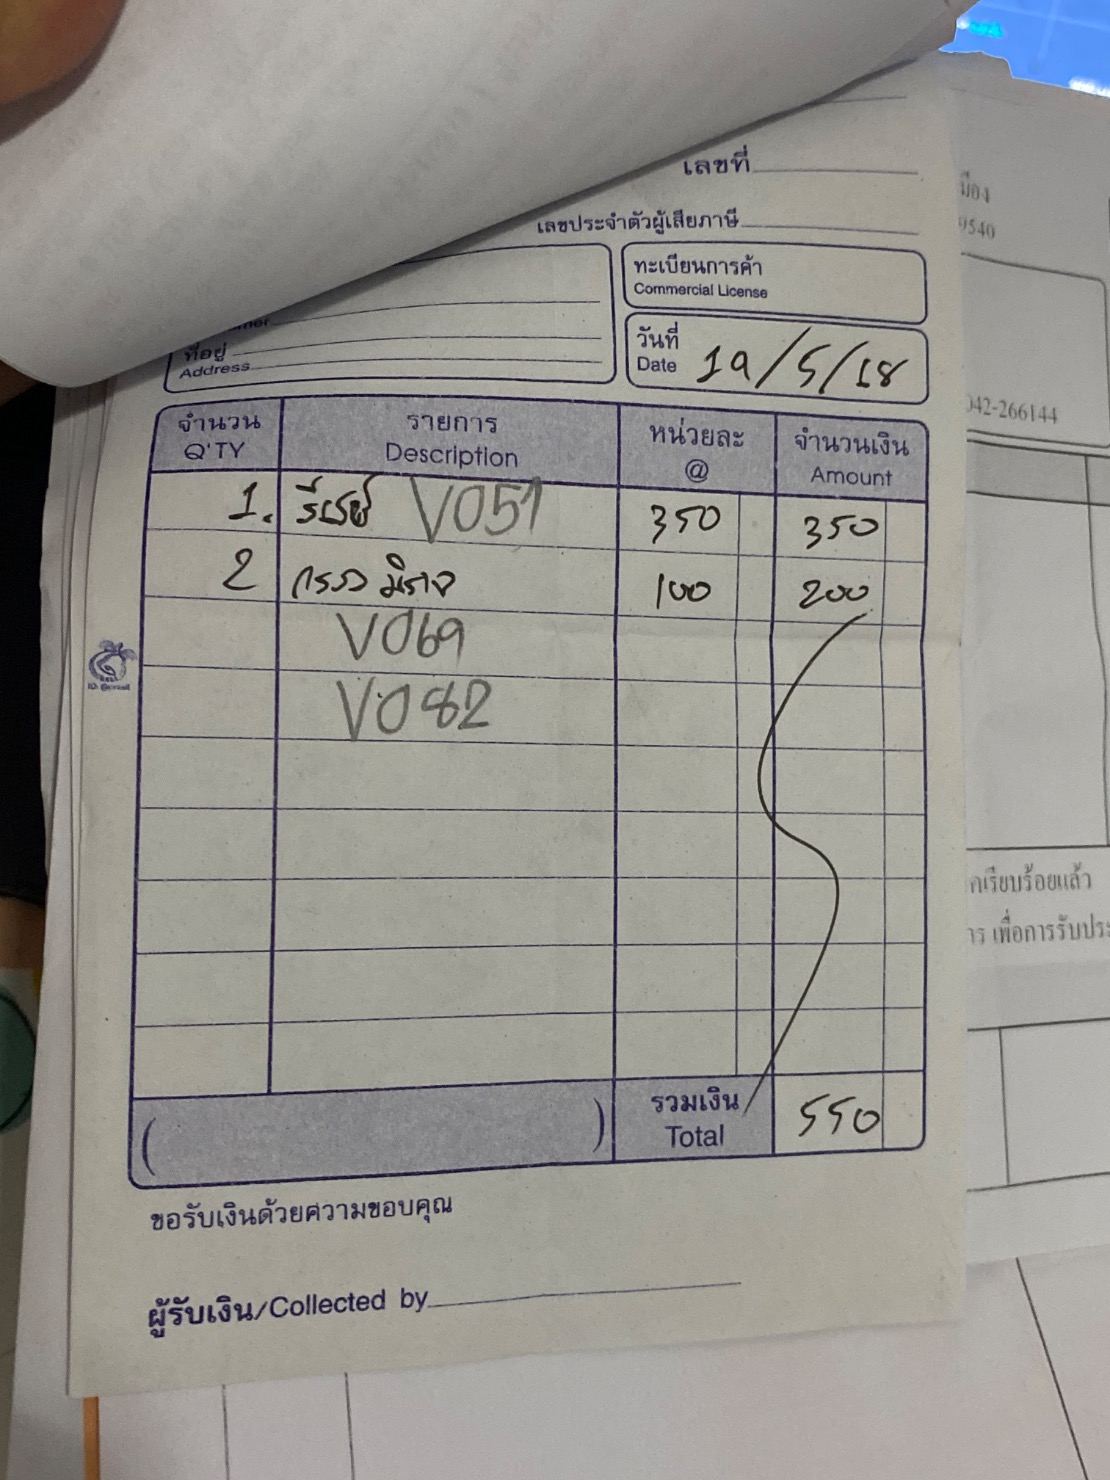 เลขที่
เลขประจำตัวผู้เสียภาษี
ทะเบียนการค้า
Commercial License
ที่อยู่
Address
วันที่
Date 19/5/18
จำนวน รายการ หน่วยละ จำนวนเงิน
Q'TY Description @ Amount
1. V051 350 350
2 กรรไกร 100 200
V069
V082
รวมเงิน
Total 550
ขอรับเงินด้วยความขอบคุณ
ผู้รับเงิน/Collected by
9540
042-266144
เรียบร้อยแล้ว
เพื่อการรับประ